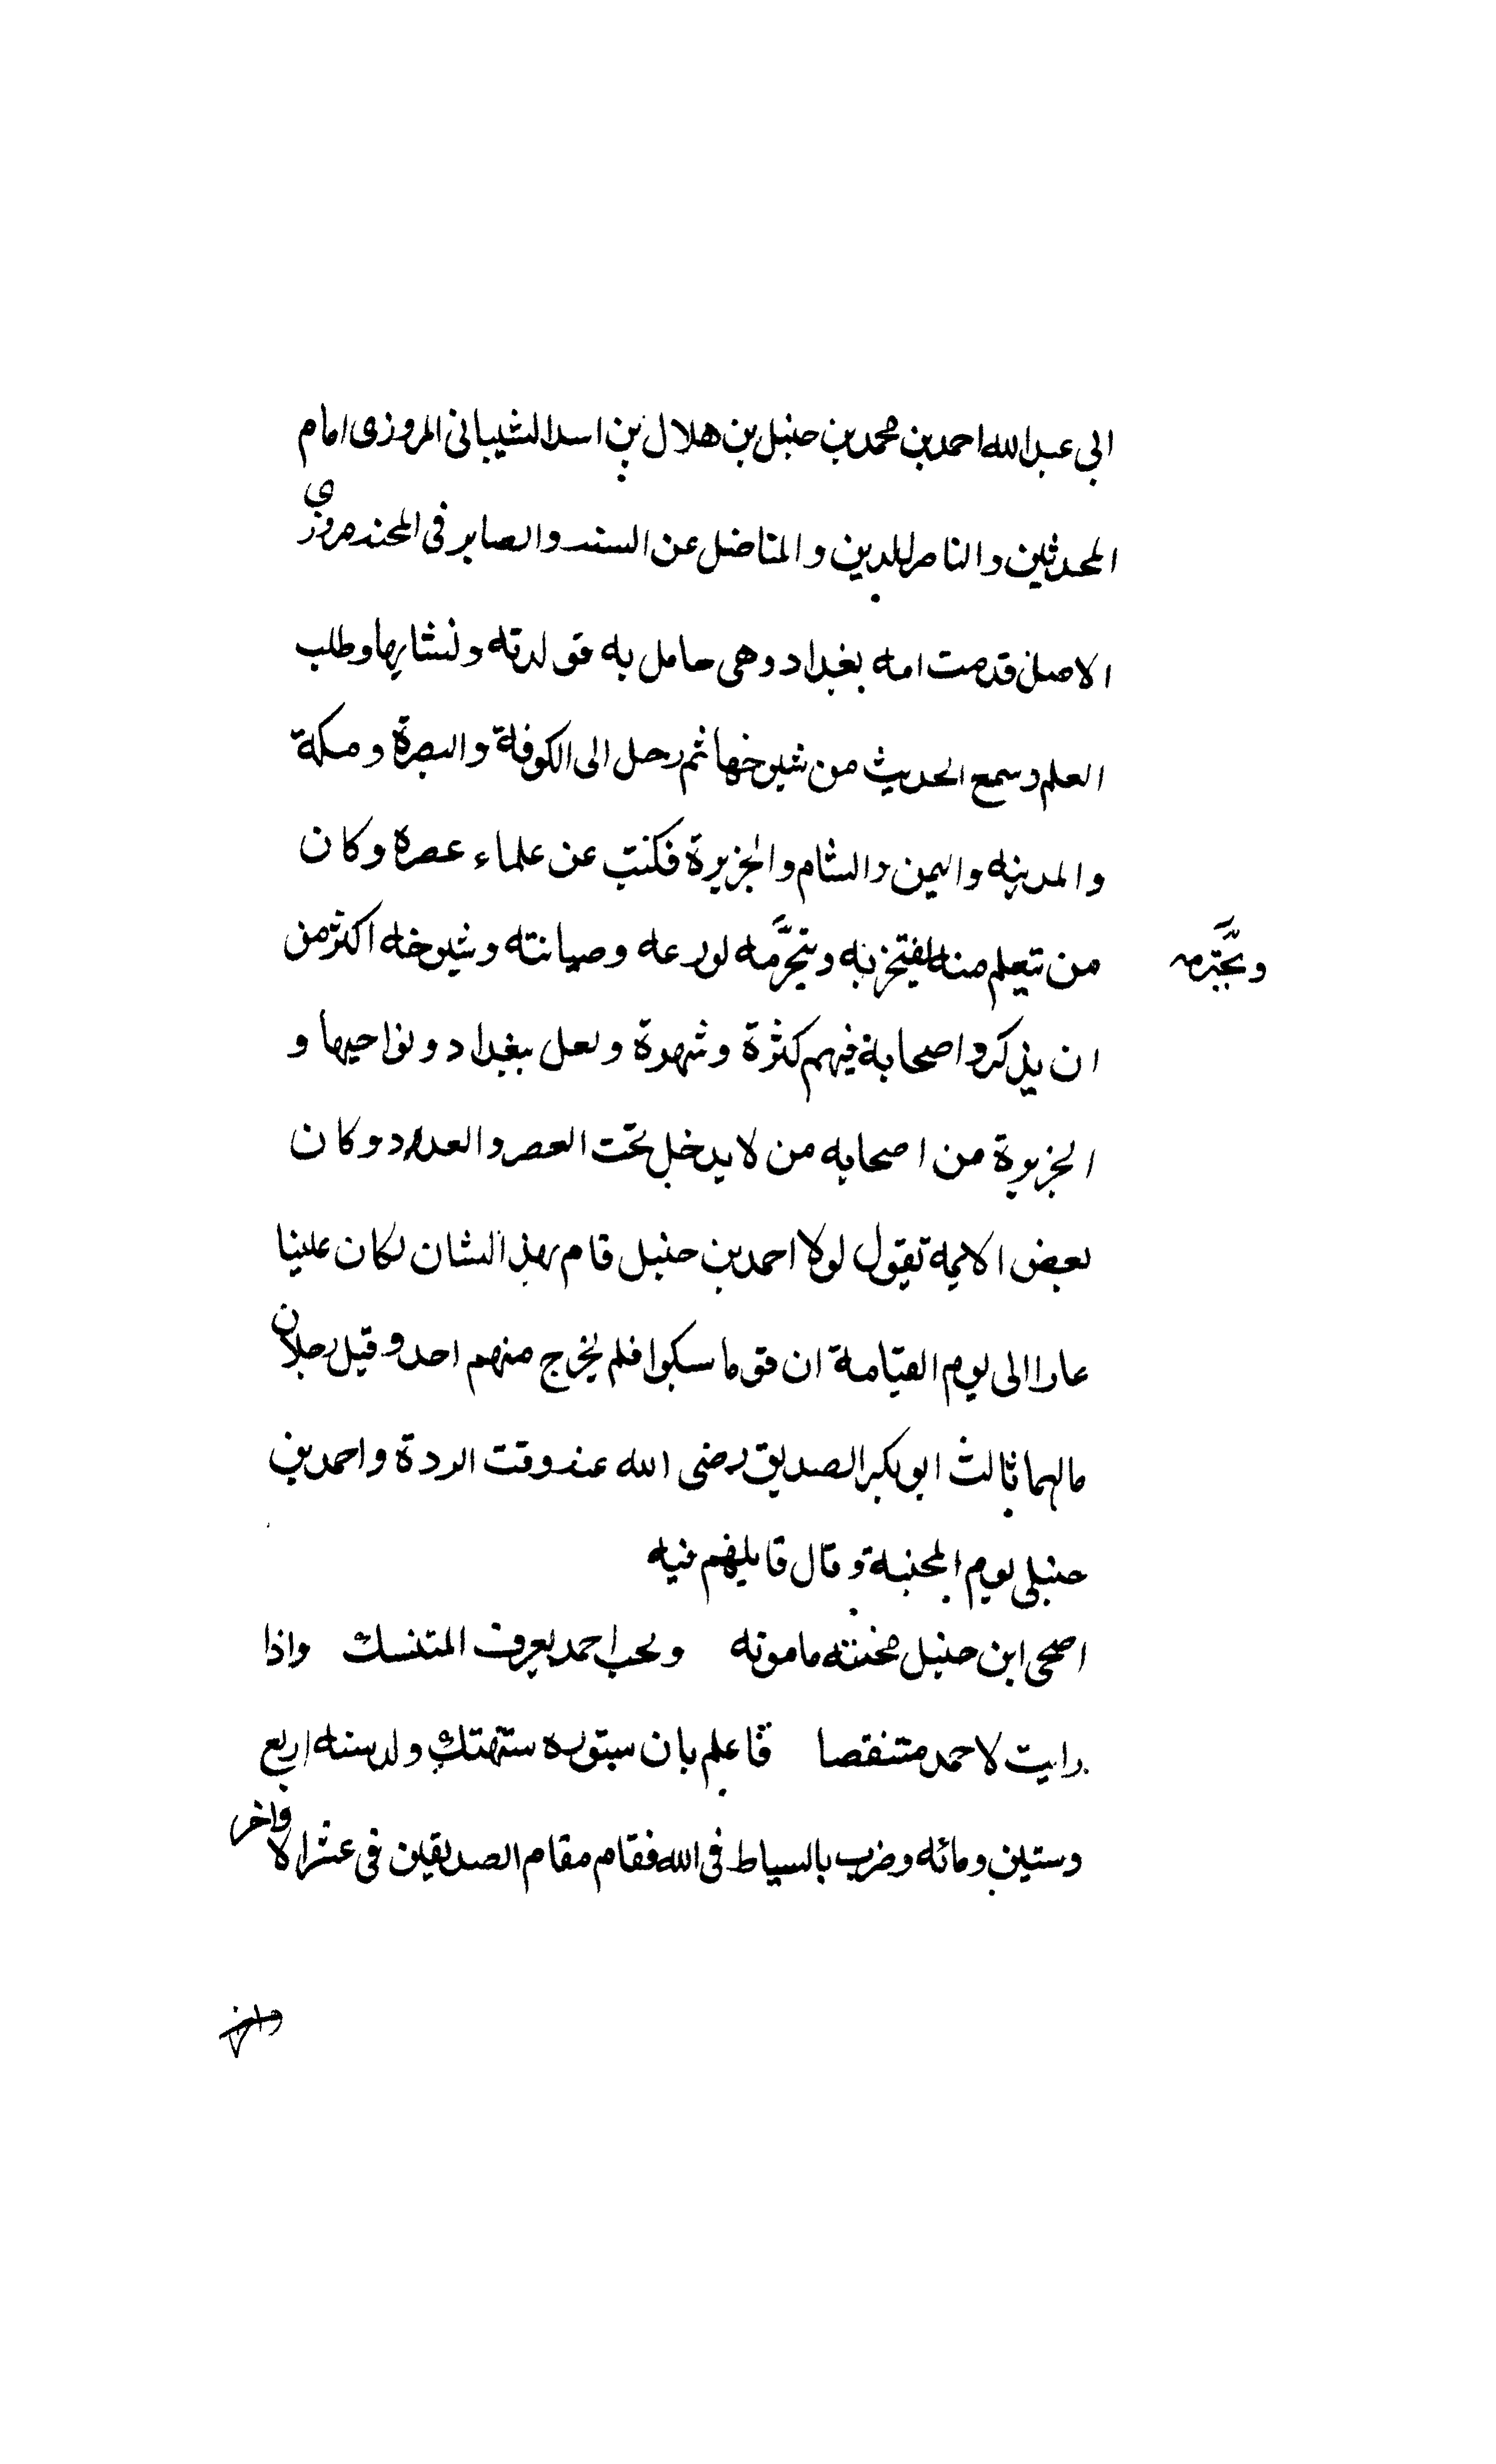 ابي عبد الله احمد بن محمد بن حنبل بن هلال بن اسد الشيباني المروزى امام
المحدثين والناصر للدين والمناضل عن السنه والصابر فى المحنه مروزي
الاصل قدمت امه بغداد وهى حامل به فولدته ونشا بها وطلب
العلم وسمع الحديث من شيوخها ثم رحل الى الكوفة والبصرة ومكة
والمدينه واليمن والشام والجزيرة فكتب عن علماء عصره وكان
من يتعلم منه ليفتخر به ويحرمه لورعه وصيانته وشيوخه اكثر من
ويحترمه
ان يذكروا صحابة فيهم كثرة وشهرة ولعل ببغداد ونواحيها و
الجزيرة من اصحابه من لا يدخل تحت العصر والعدد وكان
بعض الايمه تقول لولا احمد بن حنبل قام بهذا الشان لكان علينا
عارا الى يوم القيامة ان قوما سكبوا فلم يخرج منهم احد وقيل رجلان
مالهما ثالث ابو بكر الصديق رضى الله عنه وقت الردة واحمد بن
حنبل يوم المحنة وقال قايلهم فيه
اضحى ابن حنبل محنته مامونه وبحب احمد يعرف المتنسك واذا
رايت لاحمد متنقصا فاعلم بان ستوره ستهتك ولد سنه اربع
وستين ومائه وضرب بالسياط فى الله فقام مقام الصديقين فى عشر الاواخر